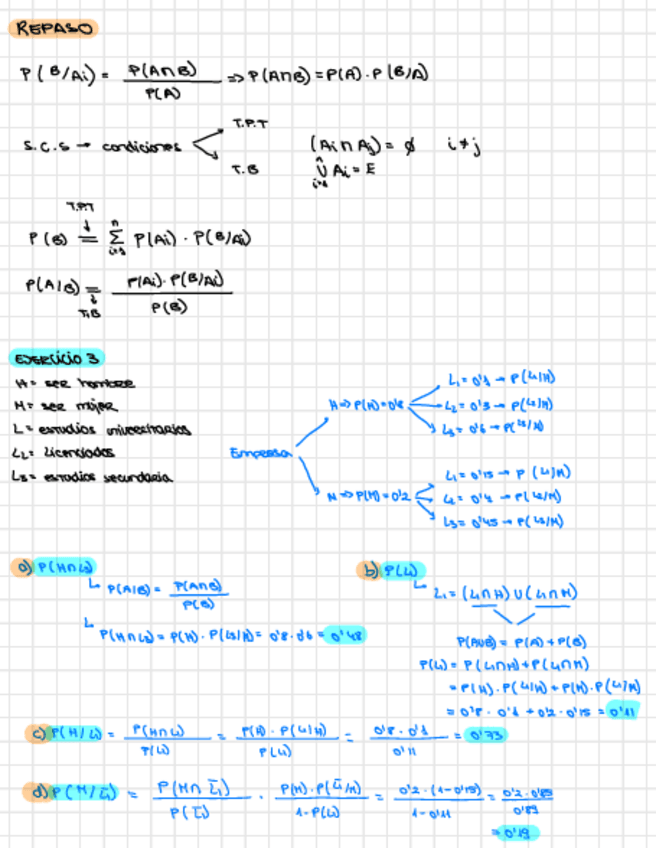 REPASO
P(B/Ai) = P(A∩B) / P(A) => P(A∩B) = P(A) · P(B/A)
S.C.S → condiciones
T.P.T
T.B
(Ai ∩ Aj) = ∅ i ≠ j
n ∪ i=1 Ai = E
T.P.T
P(B) = n Σ i=1 P(Ai) · P(B/Ai)
P(A/B) = P(Ai) · P(B/Ai) / P(B)
T.B
EJERCICIO 3
H = ser hombre
M = ser mujer
L = estudios universitarios
L2 = Licenciados
L3 = estudios secundaria
Empresa
H => P(H) = 0'8
L1 = 0'1 → P(L1/H)
L2 = 0'3 → P(L2/H)
L3 = 0'6 → P(L3/H)
M => P(M) = 0'2
L1 = 0'15 → P(L1/M)
L2 = 0'4 → P(L2/M)
L3 = 0'45 → P(L3/M)
a) P(H∩L3)
P(A/B) = P(A∩B) / P(B)
P(H∩L3) = P(H) · P(L3/H) = 0'8 · 0'6 = 0'48
b) P(L1)
L1 = (L1∩H) ∪ (L1∩M)
P(A∪B) = P(A) + P(B)
P(L1) = P(L1∩H) + P(L1∩M)
= P(H) · P(L1/H) + P(M) · P(L1/M)
= 0'8 · 0'1 + 0'2 · 0'15 = 0'11
c) P(H/L1) = P(H∩L1) / P(L1) = P(H) · P(L1/H) / P(L1) = 0'8 · 0'1 / 0'11 = 0'73
d) P(M/L̄1) = P(M∩L̄1) / P(L̄1) = P(M) · P(L̄1/M) / 1-P(L1) = 0'2 · (1-0'15) / 1-0'11 = 0'2 · 0'85 / 0'89
= 0'19